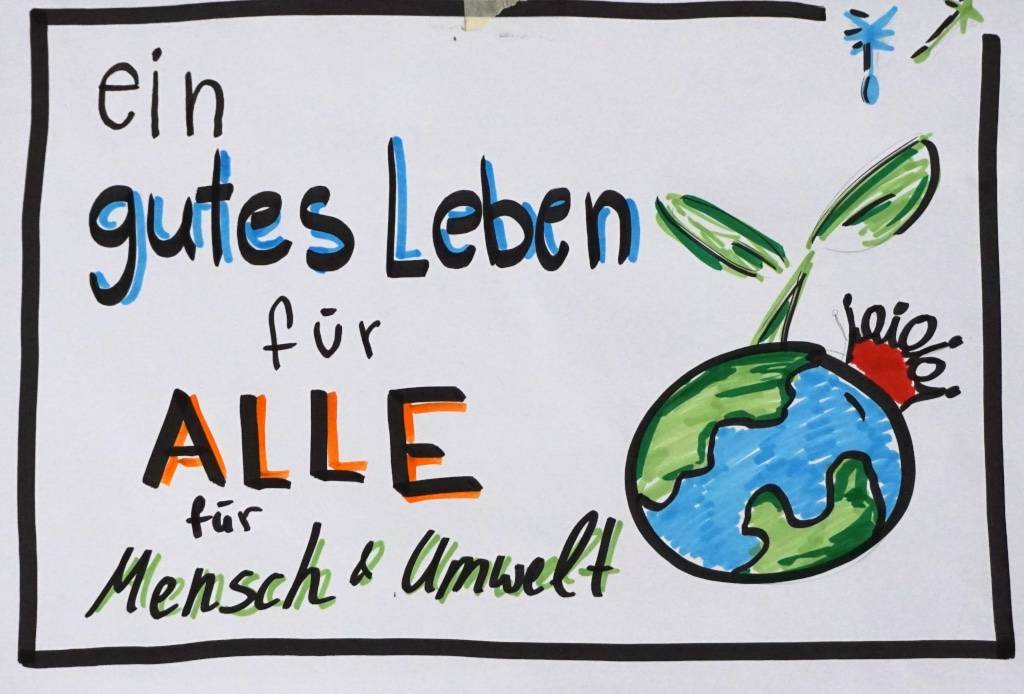 ein
gutes Leben
für
ALLE
für
Mensch & Umwelt